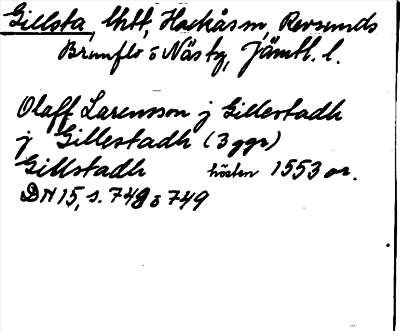 Gillsta, Utbt, Hackås sn, Revsunds
Brunflo o Näs tg, Jämtl. l.
Olaff Larensson j Gillestadh
j Gillestadh (3 ggr)
Gillstadh hösten 1553 or.
DN 15, s. 748 o 749